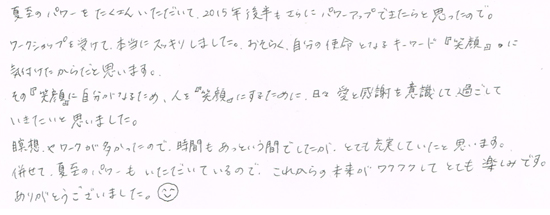 夏至のパワーをたくさんいただいて、2015年後半もさらにパワーアップできたらと思ったので。
ワークショップを受けて、本当にスッキリしました。おそらく、自分の使命となるキーワード『笑顔』に
気付けたからだと思います。
その『笑顔』に自分がなるため、人を『笑顔』にするために、日々愛と感謝を意識して過ごして
いきたいと思いました。
瞑想やワークが多かったので、時間もあっという間でしたが、とても充実していたと思います。
併せて、夏至のパワーもいただいているので、これからの未来がワクワクしてとても楽しみです。
ありがとうございました。